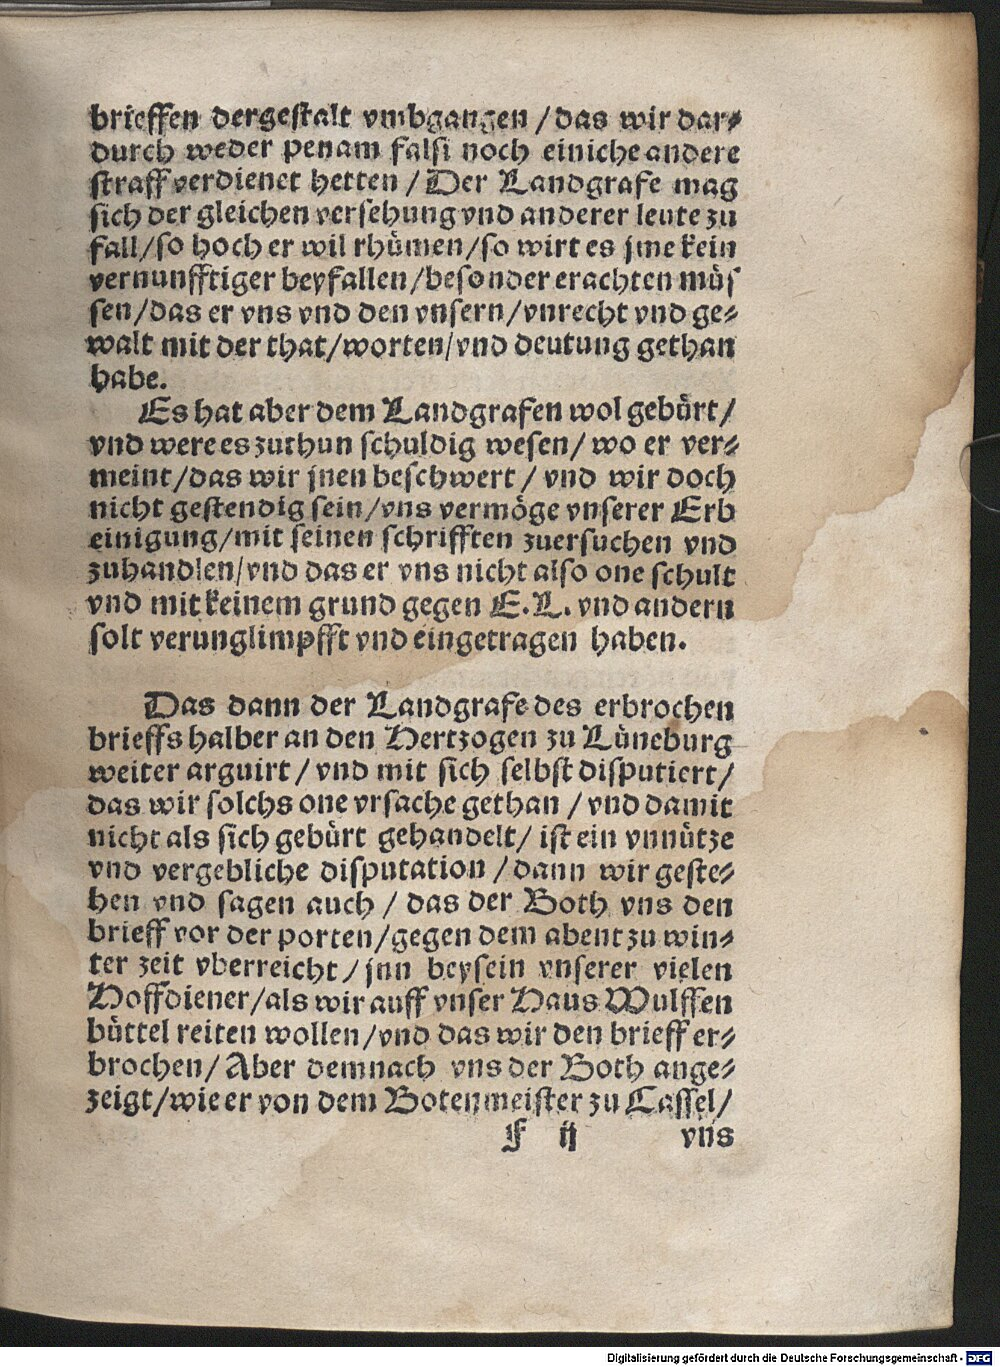 brieffen dergestalt vmbgangen / das wir dar⸗
durch weder penam falsi noch einiche andere
straff verdienet hetten / Der Landgrafe mag
sich der gleichen versehung vnd anderer leute zu
fall / so hoch er wil rhümen / so wirt es jme kein
vernunfftiger beyfallen / besonder erachten müs
sen / das er vns vnd den vnsern / vnrecht vnd ge⸗
walt mit der that / worten / vnd deutung gethan
habe.
Es hat aber dem Landgrafen wol gebürt /
vnd were es zuthun schuldig wesen / wo er ver⸗
meint / das wir jnen beschwert / vnd wir doch
nicht gestendig sein / vns vermöge vnserer Erb
einigung / mit seinen schrifften zuersuchen vnd
zuhandlen / vnd das er vns nicht also one schult
vnd mit keinem grund gegen E. L. vnd andern
solt verunglimpfft vnd eingetragen haben.
Das dann der Landgrafe des erbrochen
brieffs halber an den Hertzogen zu Lüneburg
weiter arguirt / vnd mit sich selbst disputiert /
das wir solchs one vrsache gethan / vnd damit
nicht als sich gebürt gehandelt / ist ein vnnütze
vnd vergebliche disputation / dann wir geste⸗
hen vnd sagen auch / das der Both vns den
brieff vor der porten / gegen dem abent zu win⸗
ter zeit vberreicht / jnn beysein vnserer vielen
Hoffdiener / als wir auff vnser Haus Wulffen
büttel reiten wollen / vnd das wir den brieff er⸗
brochen / Aber demnach vns der Both ange⸗
zeigt / wie er von dem Botenmeister zu Cassel /
F ij vns
Digitalisierung gefördert durch die Deutsche Forschungsgemeinschaft - DFG